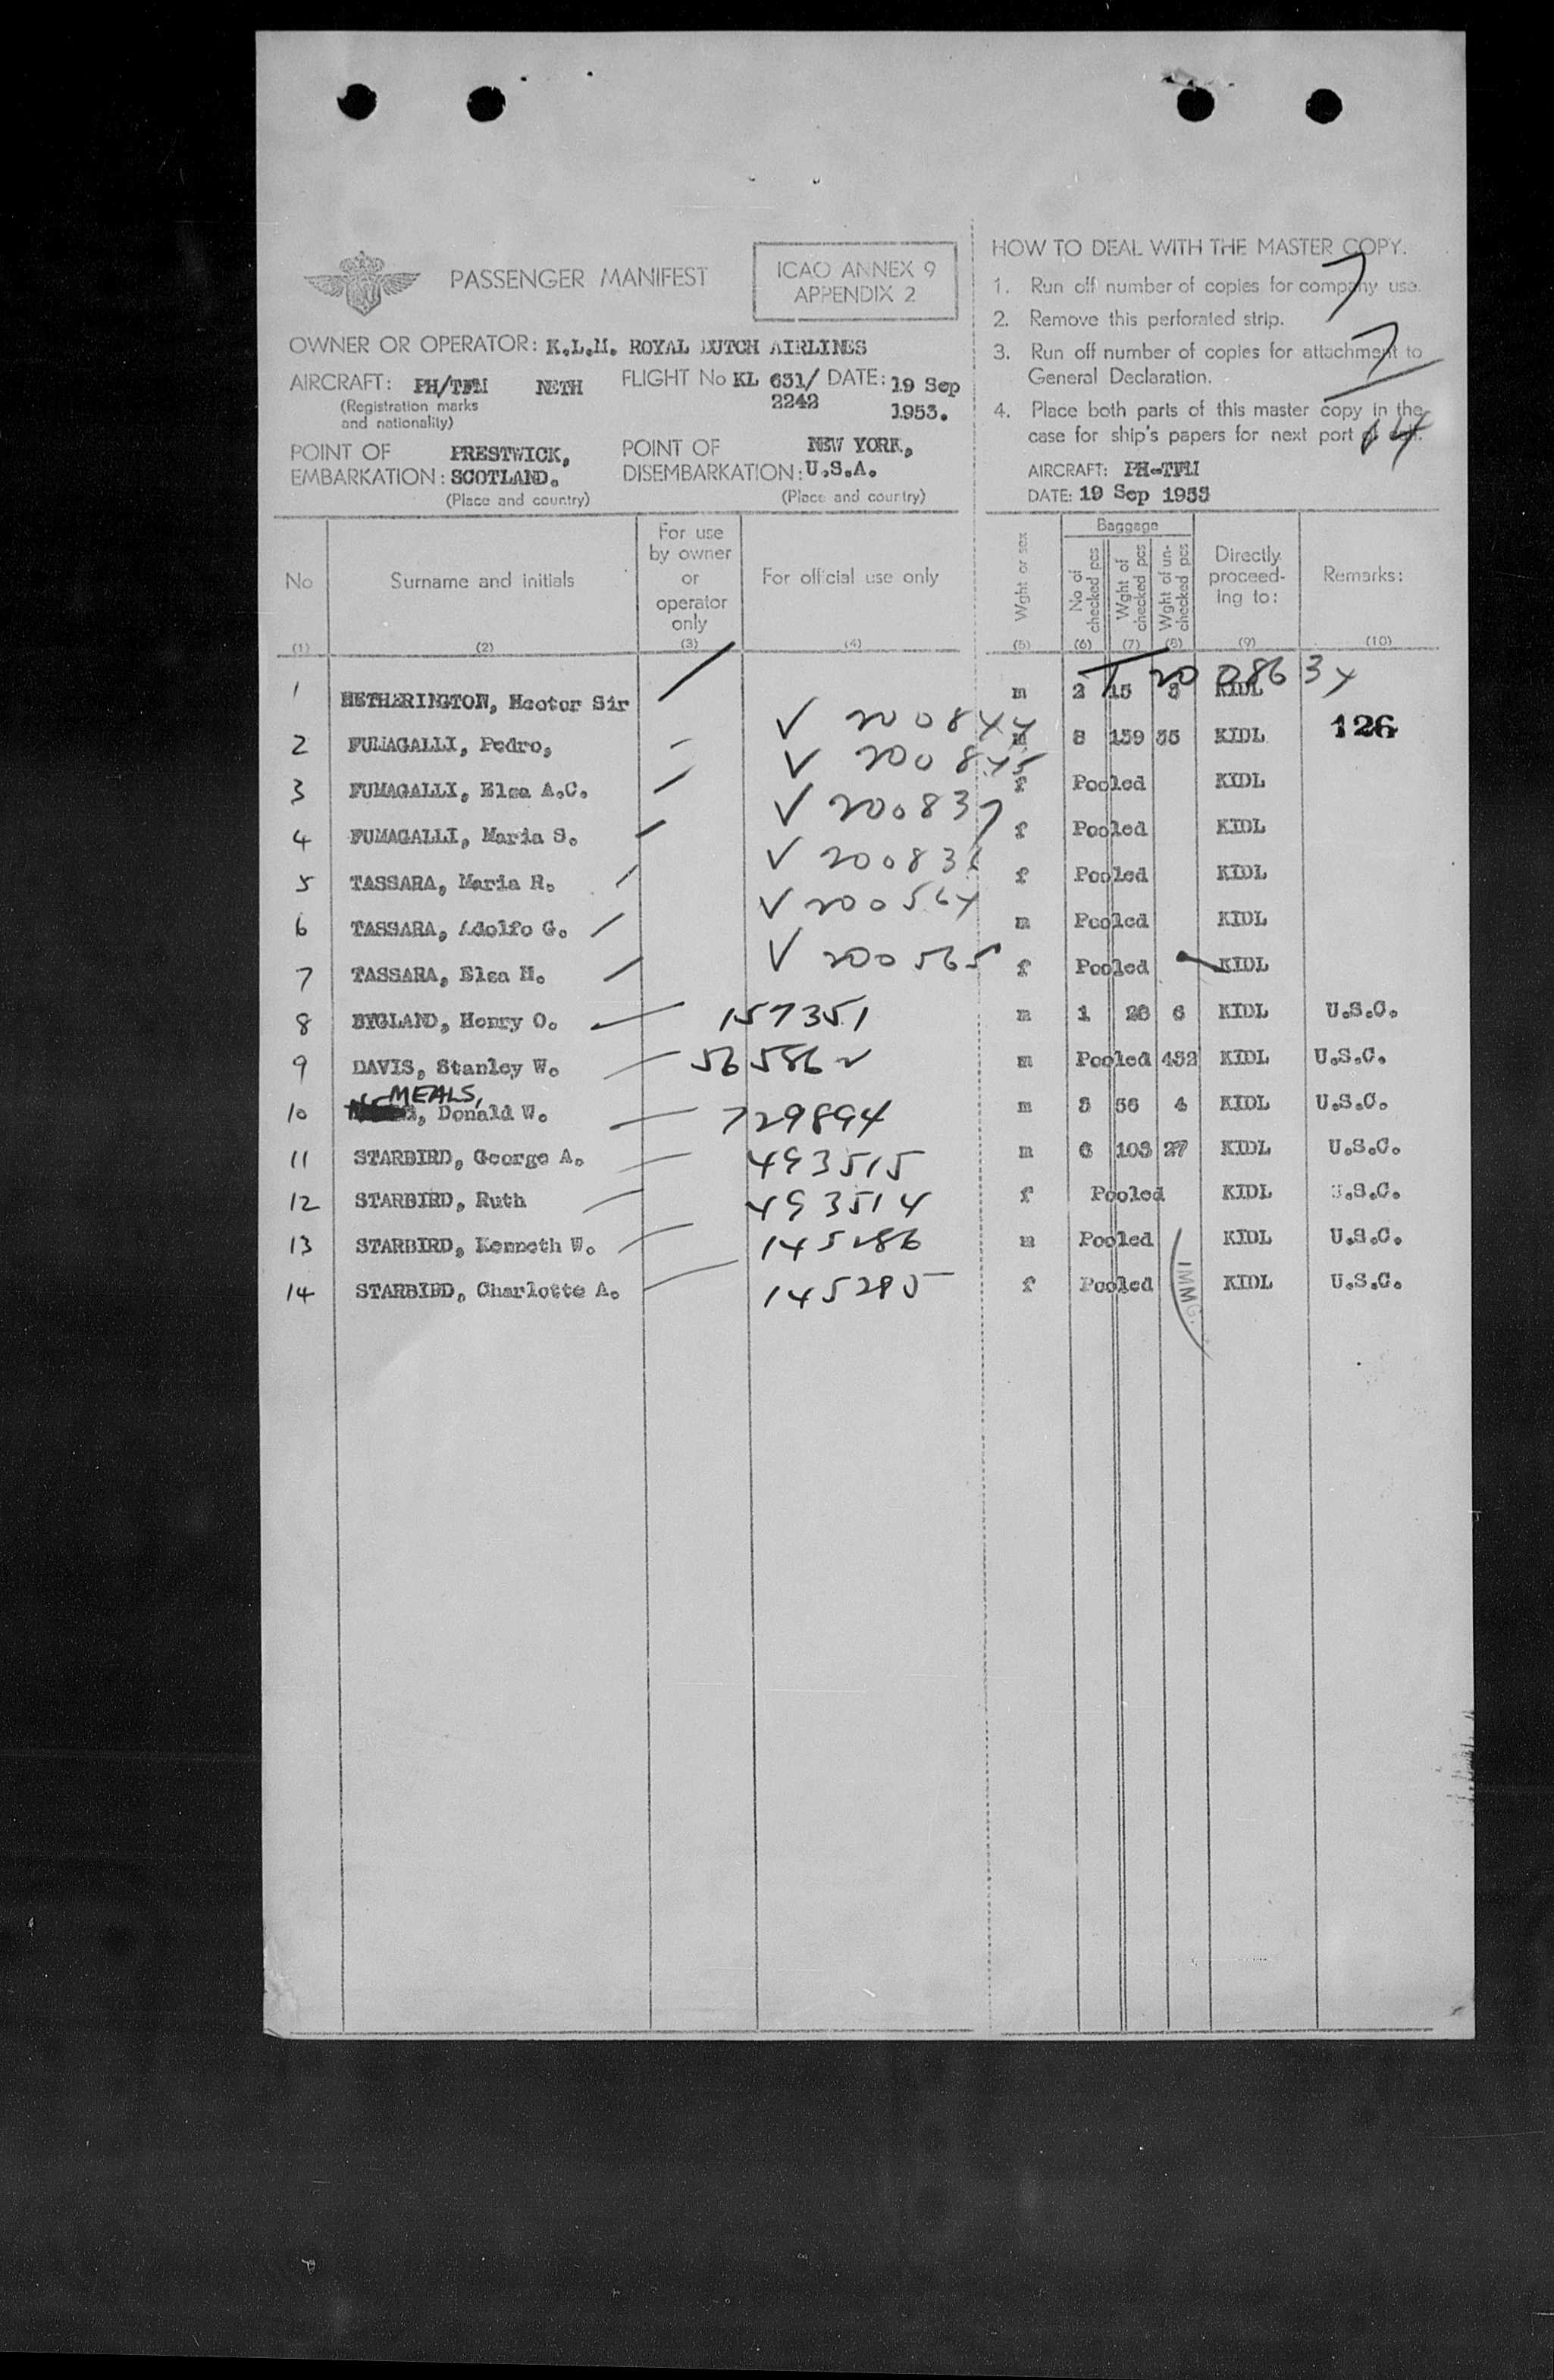 PASSENGER MANIFEST
ICAO ANNEX 9
APPENDIX 2
OWNER OR OPERATOR: K.L.M. ROYAL DUTCH AIRLINES
AIRCRAFT: PH/TFM NETH FLIGHT No KL 631/ DATE: 19 Sep
(Registration marks 2242 1953.
and nationality)
POINT OF PRESTWICK, POINT OF NEW YORK,
EMBARKATION: SCOTLAND. DISEMBARKATION: U.S.A.
(Place and country) (Place and country)
HOW TO DEAL WITH THE MASTER COPY.
1. Run off number of copies for company use.
2. Remove this perforated strip.
3. Run off number of copies for attachment to
General Declaration.
4. Place both parts of this master copy in the
case for ship's papers for next port
7
7
14
AIRCRAFT: PH-TFM
DATE: 19 Sep 1953
No Surname and initials For use by owner or operator only For official use only Wght or sex Baggage No of checked pcs Wght of checked pcs Wght of un-checked pcs Directly proceed-ing to: Remarks:
(1) (2) (3) (4) (5) (6) (7) (8) (9) (10)
1 HETHERINGTON, Hector Sir m 2 15 3 KIDL
2 FUMAGALLI, Pedro, √ 200844 m 8 159 35 KIDL 126
3 FUMAGALLI, Elsa A.C. √ 200845 f Pooled KIDL
4 FUMAGALLI, Maria S. √ 200837 f Pooled KIDL
5 TASSARA, Maria R. √ f Pooled KIDL
6 TASSARA, Adolfo G. √ 200564 m Pooled KIDL
7 TASSARA, Elsa H. √ 200565 f Pooled KIDL
8 BYGLAND, Henry O. 157351 m 1 26 6 KIDL U.S.C.
9 DAVIS, Stanley W. 565862 m Pooled 452 KIDL U.S.C.
10 MEALS, Donald W. 729894 m 3 56 4 KIDL U.S.C.
11 STARBIRD, George A. 493515 m 6 103 27 KIDL U.S.C.
12 STARBIRD, Ruth 493514 f Pooled KIDL U.S.C.
13 STARBIRD, Kenneth W. 145286 m Pooled KIDL U.S.C.
14 STARBIRD, Charlotte A. 145285 f Pooled KIDL U.S.C.
IMMG.